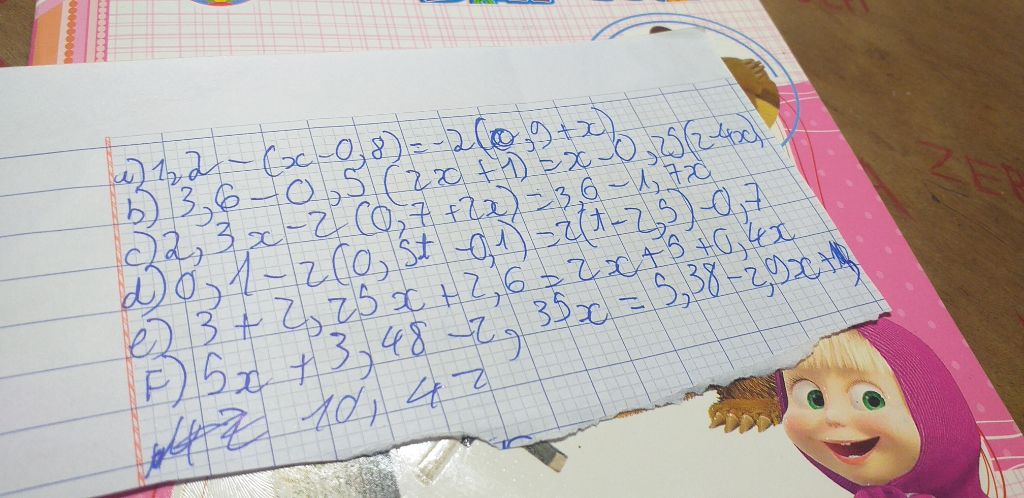 a) 1,2 - (x - 0,8) = -2(0,9 + x)
b) 3,6 - 0,5(2x + 1) = x - 0,25(2-4x),
c) 2,3x - 2(0,7 + 2x) = 3,6 - 1,7x
d) 0,1 - 2(0,5t - 0,1) = 2(1 - 2,5) - 0,7
e) 3 + 2,25x + 2,6 = 2x + 5 + 0,4x
F) 5x + 3,48 - 2,35x = 5,38 - 2,9x +
10,42